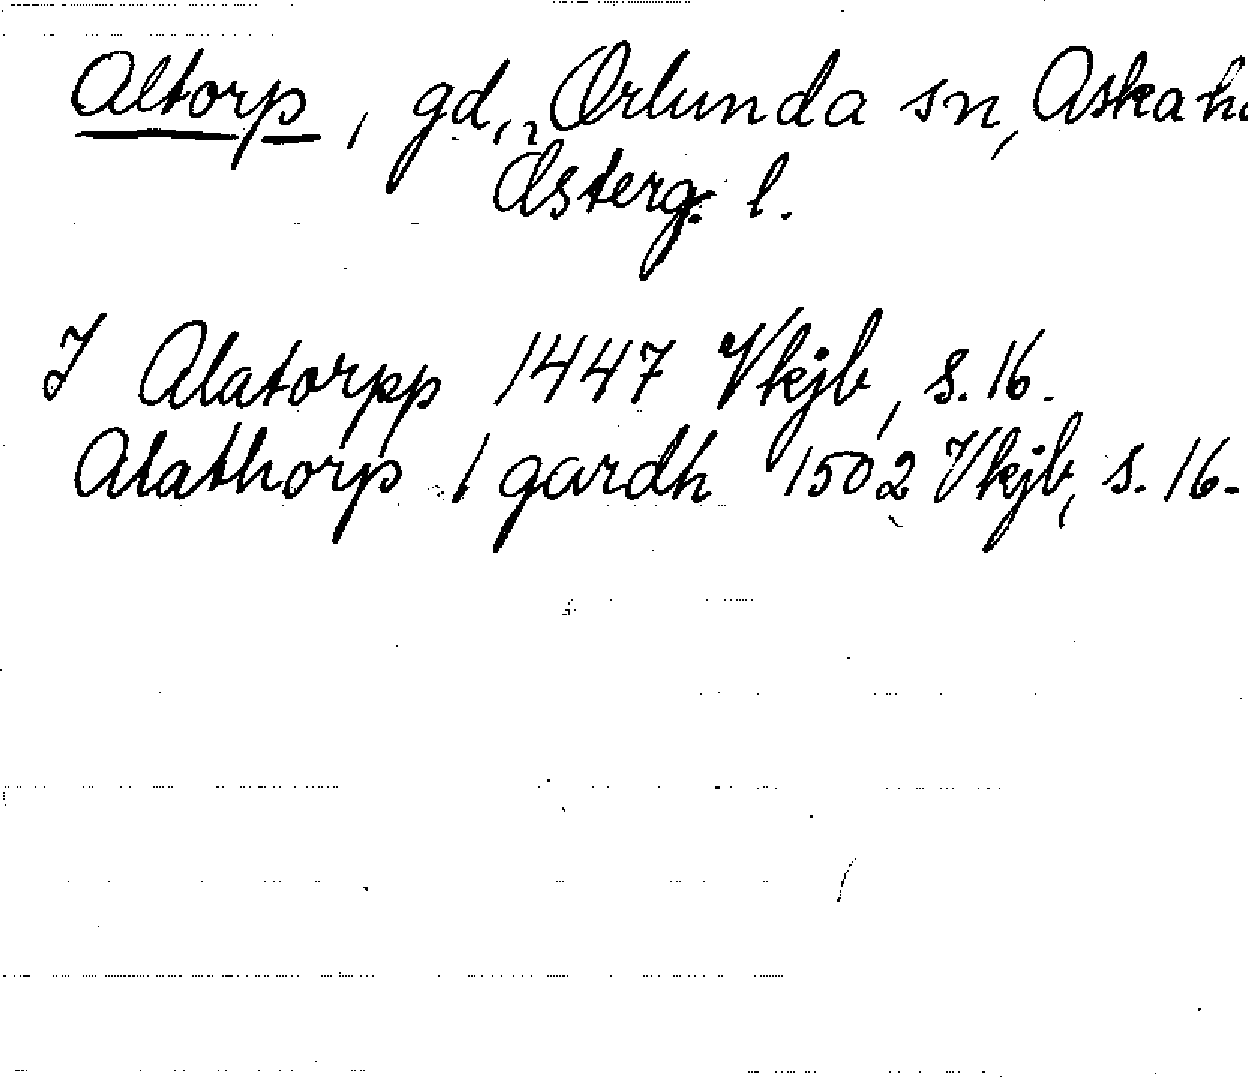 Altorp, gd, Orlunda sn, Aska hd
Österg. l.
I Alatorpp 1447 Vkjb, s. 16.
Alathorp 1 gardh 1502 Vkjb, s. 16.